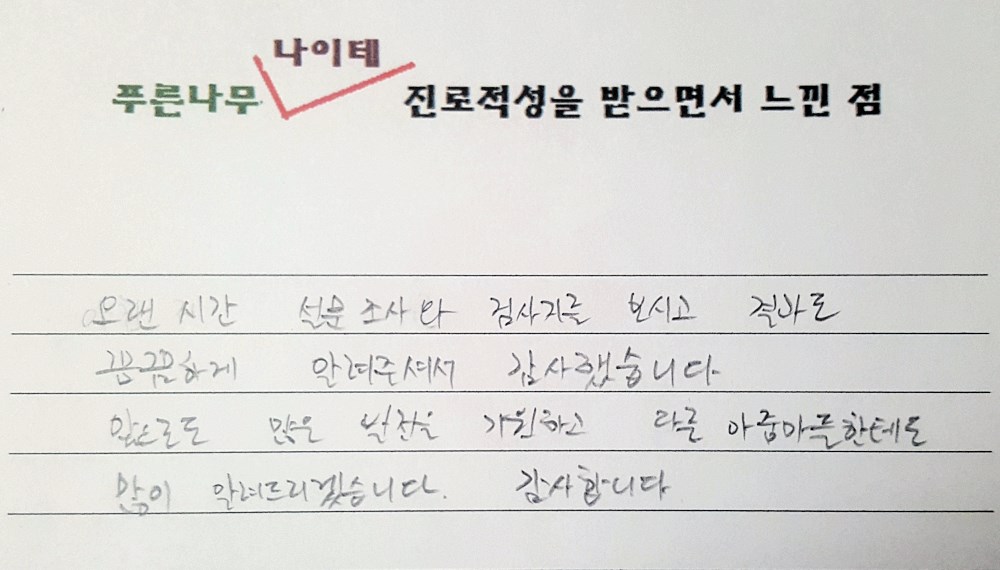 나이테
푸른나무 진로적성을 받으면서 느낀 점
오랜 시간 설문조사와 검사지를 보시고 결과도
꼼꼼하게 알려주셔서 감사했습니다
앞으로도 많은 발전을 기원하고 다른 아줌마들한테도
많이 알려드리겠습니다. 감사합니다